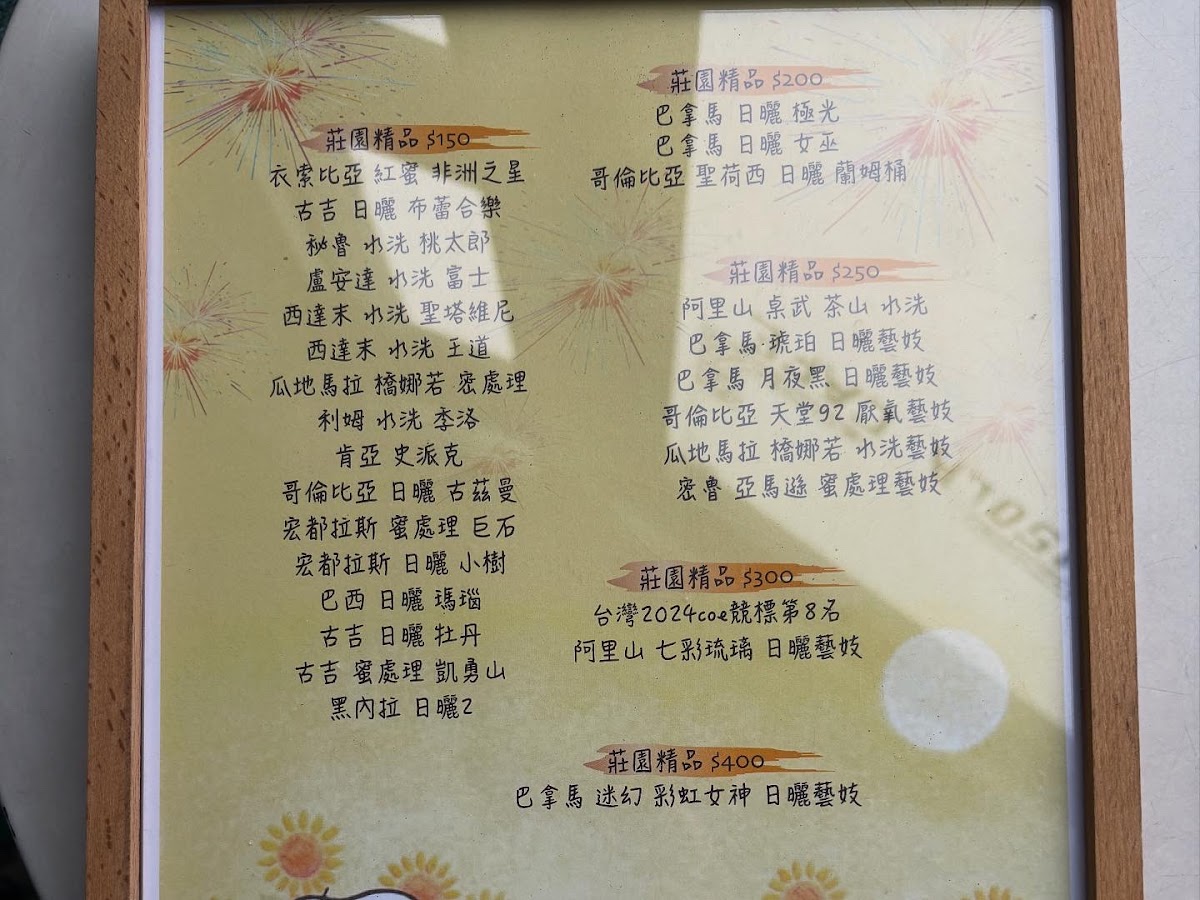 莊園精品 $150
衣索比亞 紅蜜 非洲之星
古吉 日曬 布蕾合樂
秘魯 水洗 桃太郎
盧安達 水洗 富士
西達末 水洗 聖塔維尼
西達末 水洗 王道
瓜地馬拉 橋娜若 密處理
利姆 水洗 李洛
肯亞 史派克
哥倫比亞 日曬 古茲曼
宏都拉斯 蜜處理 巨石
宏都拉斯 日曬 小樹
巴西 日曬 瑪瑙
古吉 日曬 牡丹
古吉 蜜處理 凱勇山
黑內拉 日曬2
莊園精品 $200
巴拿馬 日曬 極光
巴拿馬 日曬 女巫
哥倫比亞 聖荷西 日曬 蘭姆桶
莊園精品 $250
阿里山 桌武 茶山 水洗
巴拿馬 琥珀 日曬藝妓
巴拿馬 月夜黑 日曬藝妓
哥倫比亞 天堂92 厭氧藝妓
瓜地馬拉 橋娜若 水洗藝妓
密魯 亞馬遜 蜜處理藝妓
莊園精品 $300
台灣2024coe競標第8名
阿里山 七彩琉璃 日曬藝妓
莊園精品 $400
巴拿馬 迷幻 彩虹女神 日曬藝妓